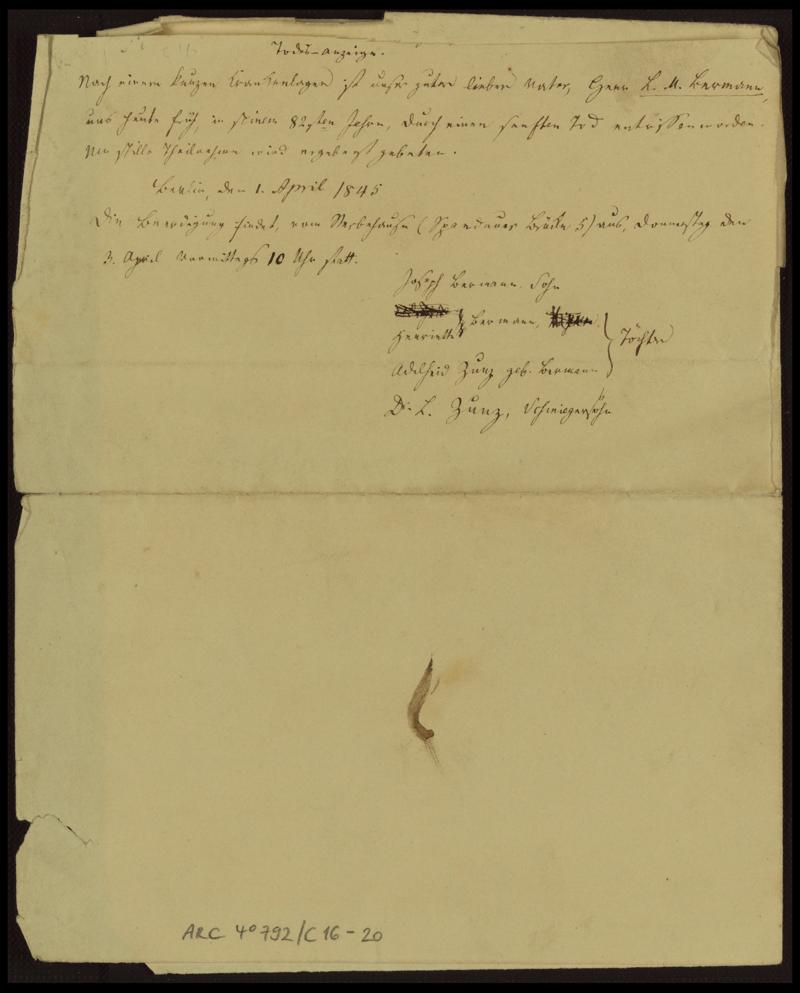 Todes-Anzeige.
Nach einem kurzen Krankenlager ist unser guter lieber Vater, Herr L. M. Bermann,
uns heute früh, in seinem 82sten Jahre, durch einen sanften Tod entrissen worden.
Um stille Theilnahme wird ergebenst gebeten.
Berlin, den 1. April 1845
Die Beerdigung findet, vom Sterbehause (Spandauer Brücke 5) aus, Donnerstag den
3. April Vormittags 10 Uhr statt.
Joseph Bermann, Sohn
Henriette Bermann, Töchter
Adelheid Zunz geb. Bermann
Dr. L. Zunz, Schwiegersohn
ARC 4° 792/C16-20